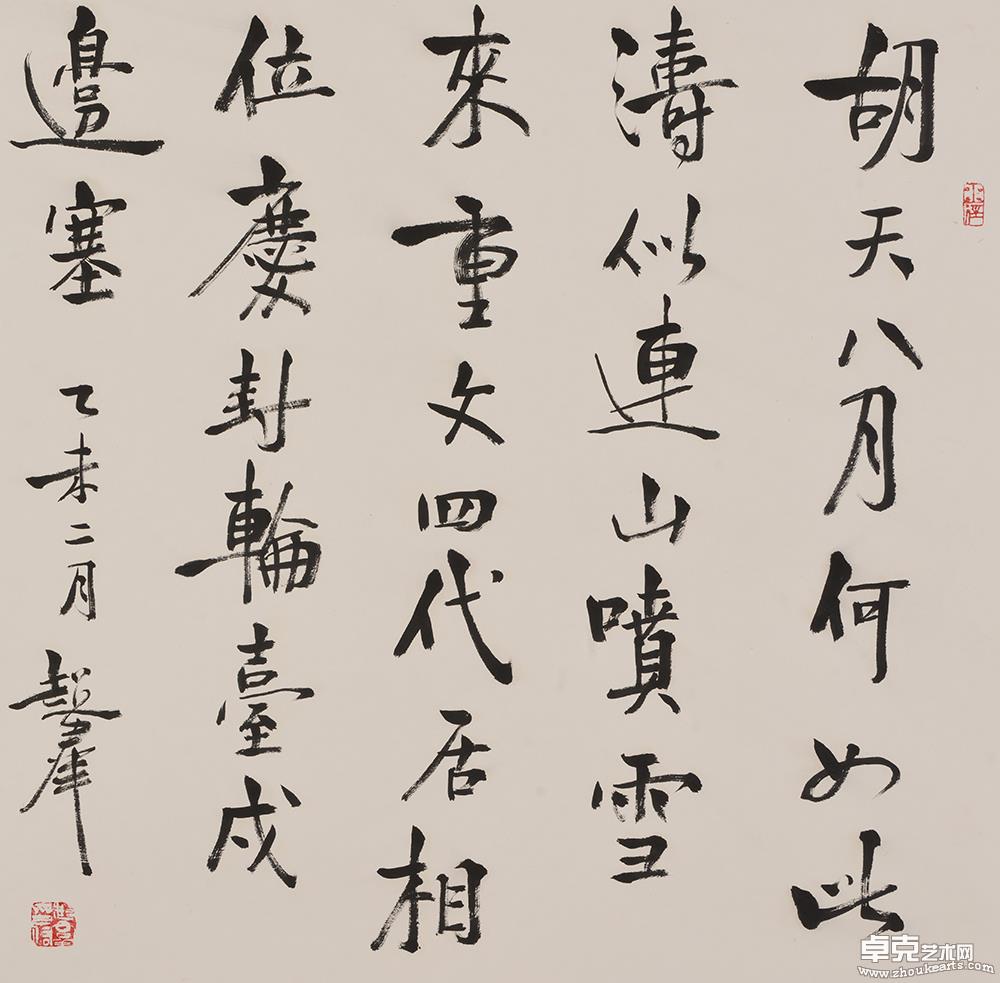 胡天八月何如此
濤似連山噴雪
來重文四代居相
位慶封輪臺戍
邊塞 乙未二月
卓克艺术网
www.zhoukearts.com